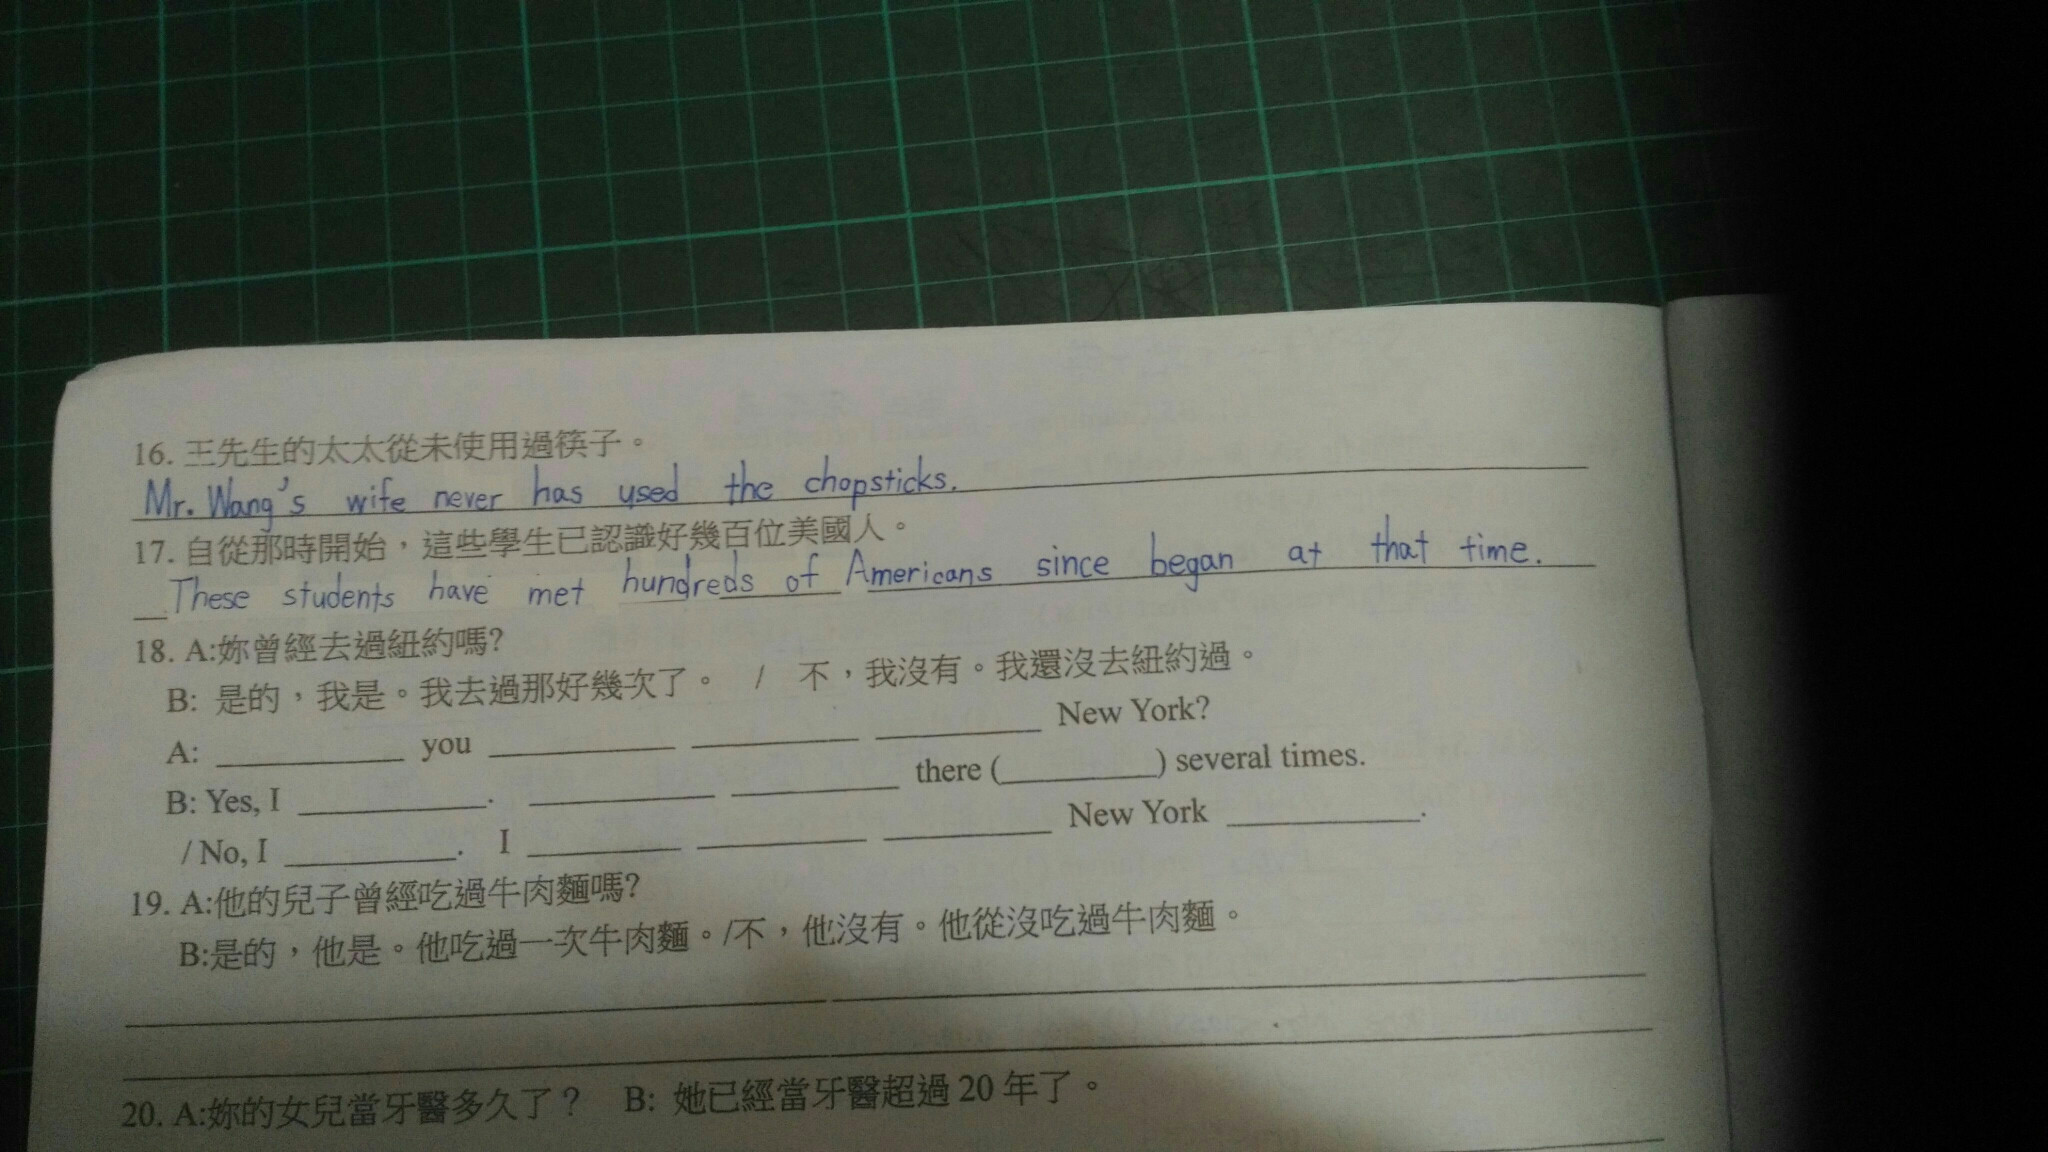 16. 王先生的太太從未使用過筷子。
Mr. Wang's wife never has used the chopsticks.
17. 自從那時開始，這些學生已認識好幾百位美國人。
These students have met hundreds of Americans since began at that time.
18. A:妳曾經去過紐約嗎?
B: 是的，我是。我去過那好幾次了。 / 不，我沒有。我還沒去紐約過。
A: ____________ you ____________ ____________ ____________ New York?
B: Yes, I ____________. ____________ ____________ there (____________) several times.
/ No, I ____________. I ____________ ____________ ____________ New York ____________.
19. A:他的兒子曾經吃過牛肉麵嗎?
B:是的，他是。他吃過一次牛肉麵。/不，他沒有。他從沒吃過牛肉麵。
20. A:妳的女兒當牙醫多久了？ B: 她已經當牙醫超過 20 年了。